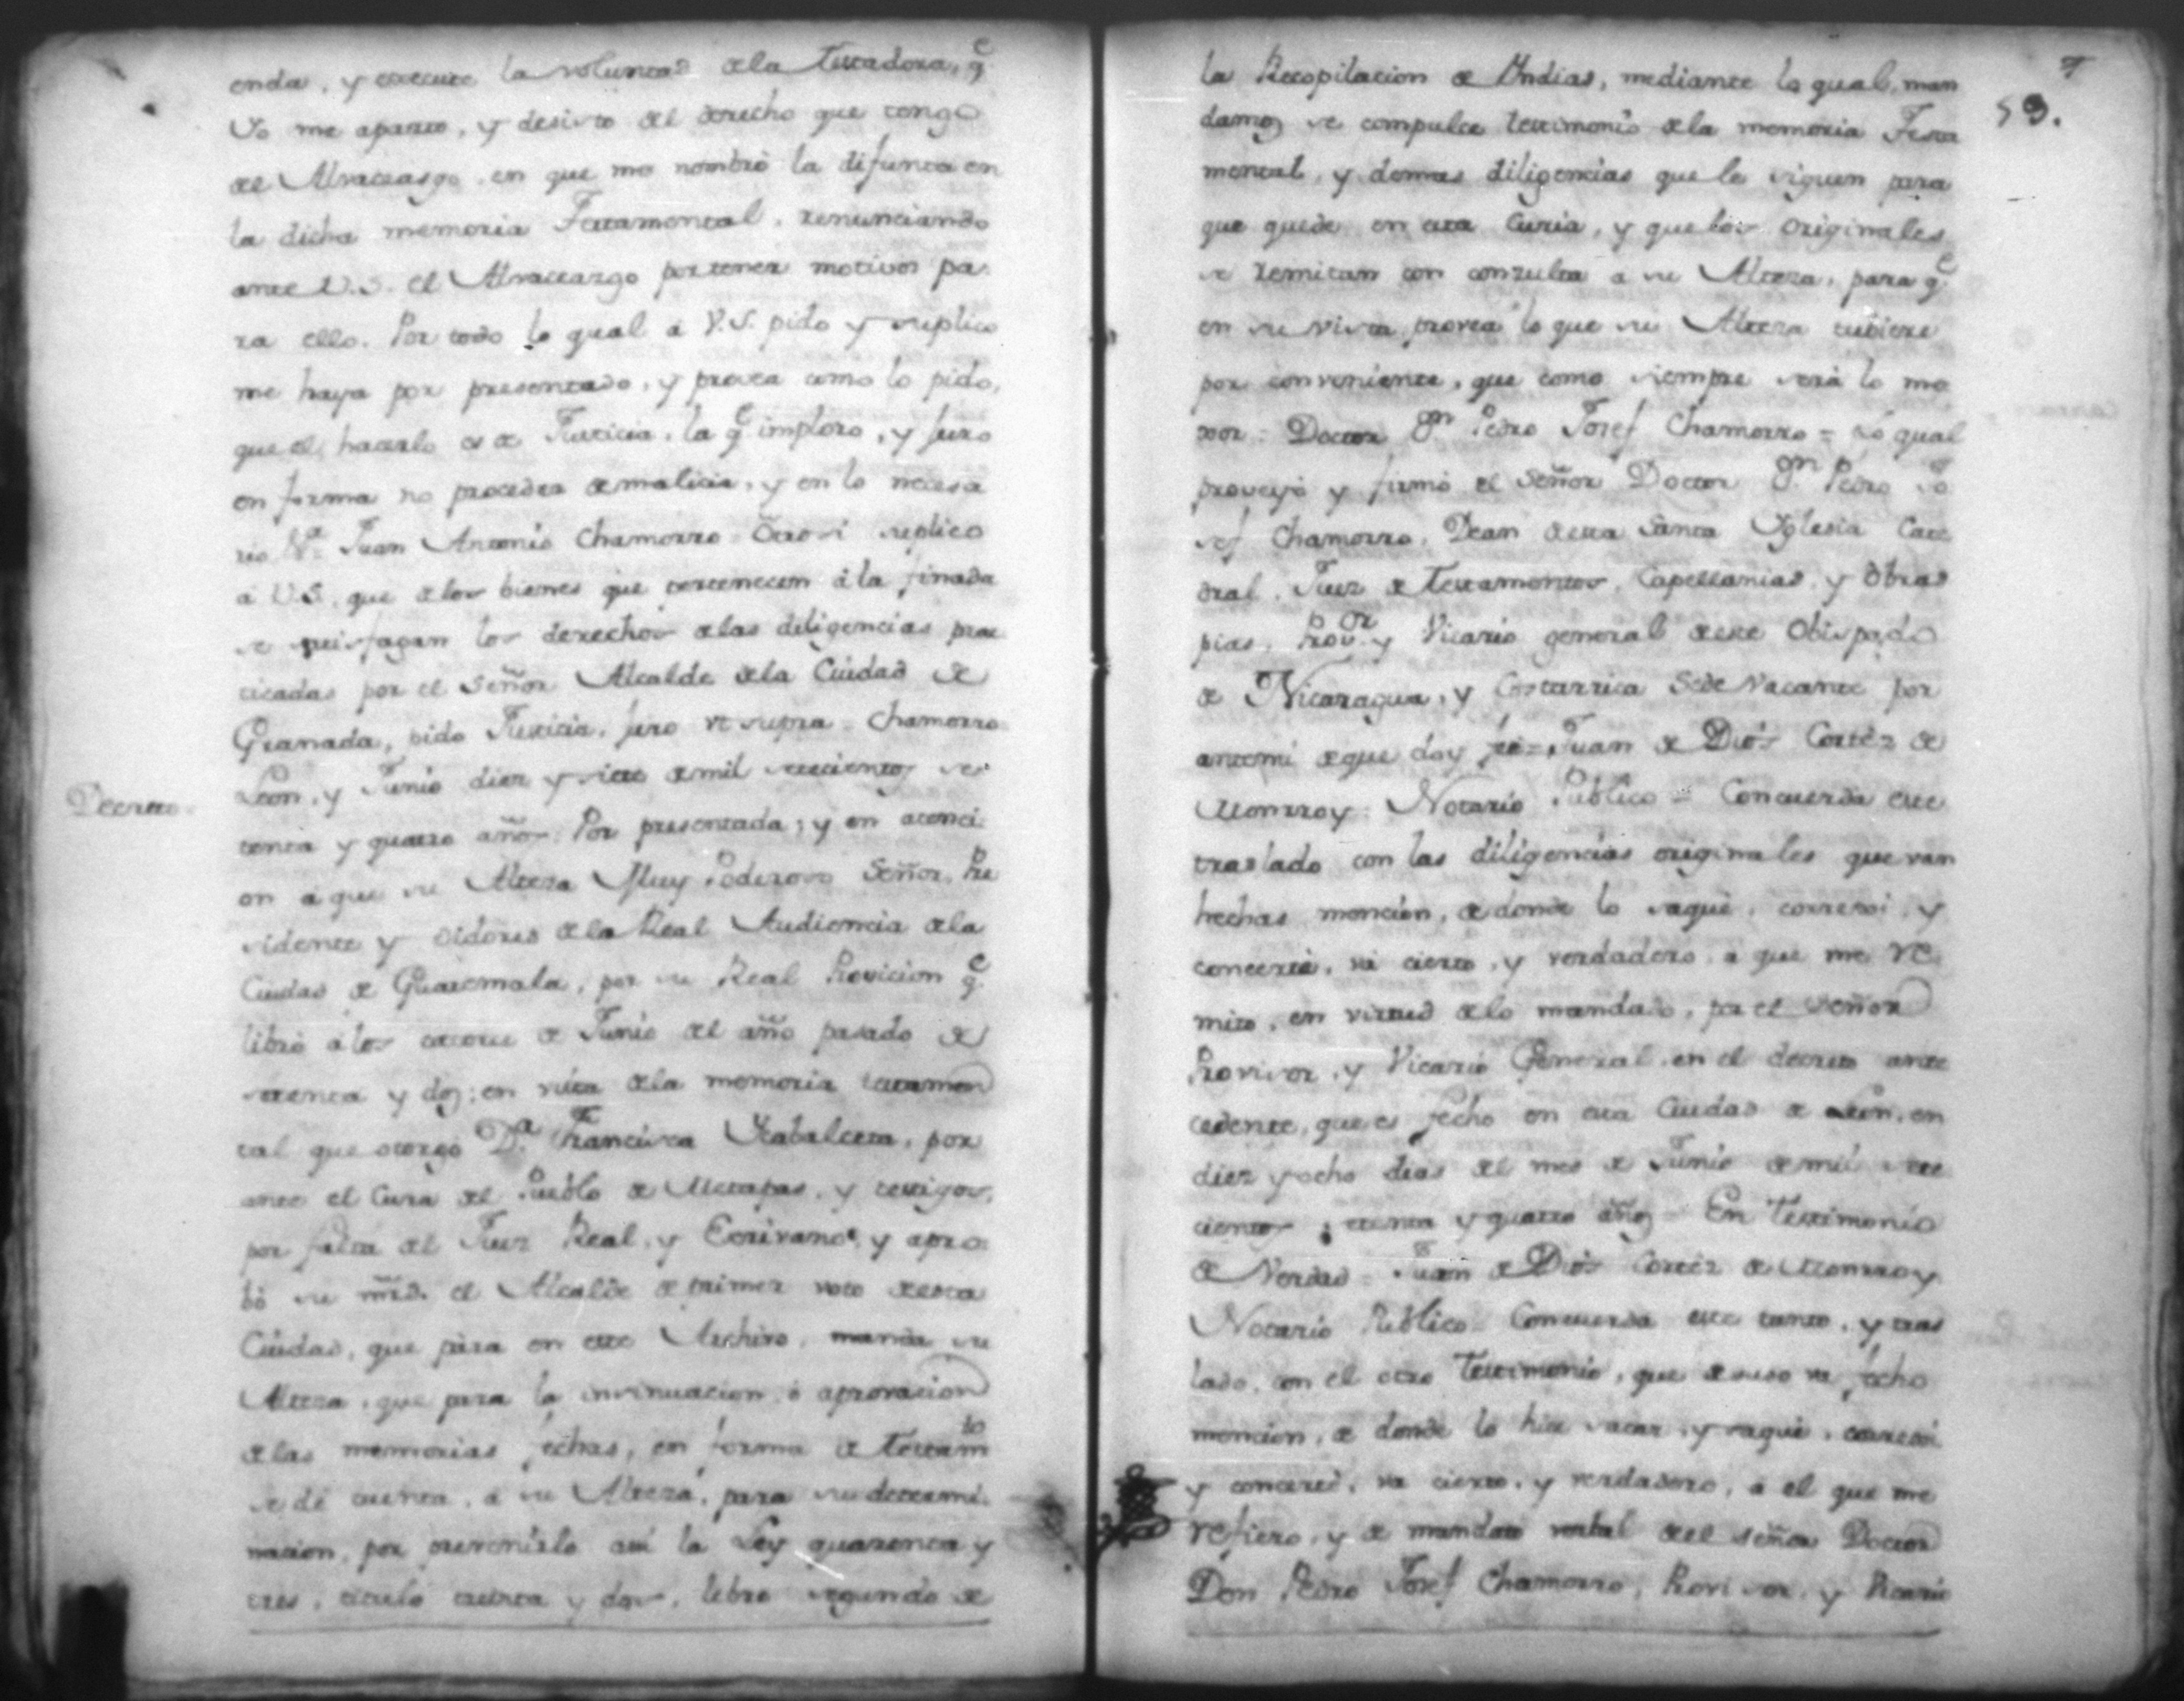 enda, y execute la voluntad dela Testadora, q.e
Yo me aparto, y desisto del derecho que tengo
de Alvaceasgo en que me nombró la difunta en
la dicha memoria Testamental, renunciando
ante V.S. el Alvaceasgo por tener motivos pa-
ra ello. Por todo lo qual á V.S. pido y suplico
me haya por presentado, y provea como lo pido,
que el hacerlo es de Justicia, la q.e imploro, y juro
en forma no proceder de malicia, y en lo necesa
rio V.a Juan Antonio Chamorro = Otrosi suplico
á V.S. que delos bienes que pertenecen á la finada
se satisfagan los derechos delas diligencias prac
ticadas por el Señor Alcalde dela Ciudad de
Granada, pido Justicia, juro vt supra = Chamorro
Decreto =
Leon, y Junio diez y siete de mil setecientos se-
tenta y quatro años. Por presentada; y en atenci-
on á que su Alteza Muy Poderoso Señor, Pre
sidente y oidores dela Real Audiencia dela
Ciudad de Guatemala, por su Real Provicion q.e
libró á los catorce de Junio del año pasado de
setenta y dos; en vista dela memoria testamen
tal que otorgó D.a Francisca Yrabalceta, por
ante el Cura del Pueblo de Metapas, y testigos,
por falta del Juez Real, y Escrivano, y apro-
bó su mrd. el Alcalde de primer voto desta
Ciudad, que pára en este Archivo, manda su
Alteza, que para la insinuacion, ó aprovacion
delas memorias fechas, en forma de Testam.to
se dé cuenta, á su Alteza, para su determi-
nacion, por prevenirlo asi la Ley quarenta y
tres, titulo treinta y dos, libro segundo de
59.
la Recopilacion de Yndias, mediante lo qual, man
damos se compulse testimonio dela memoria Testa
mental, y demas diligencias que le siguen para
que quede en esta Curia, y que los originales
se remitan con consulta a su Alteza, para q.e
en su vista provea lo que su Alteza tubiere
por conveniente, que como siempre será lo me
xor = Doctor Dn. Pedro Josef Chamorro = Lo qual
proveyó y firmó el Señor Doctor Dn. Pedro Jo
sef Chamorro, Dean desta Santa Yglesia Cate
dral, Juez de Testamentos, Capellanias, y Obras
pias, Prov.or y Vicario general deste Obispado
de Nicaragua, y Costarrica Sede Vacante por
antemi de que doy fé = Juan de Dios Cortéz de
Monrroy: Notario Publico = Concuerda este
traslado con las diligencias originales que van
hechas mencion, de donde lo saqué, corregi, y
concerté, vá cierto, y verdadero, a que me re-
mito, en virtud delo mandado, por el Señor
Provisor, y Vicario General en el decreto ante
cedente, que es fecho en esta Ciudad de Leon, en
diez y ocho dias del mes de Junio de mil sete
cientos setenta y quatro años = En Testimonio
de Verdad = Juan de Dios Cortéz de Monrroy
Notario Publico = Concuerda este tanto, y tras
lado, con el otro Testimonio, que desuso va fecho
mencion, de donde lo hice sacar, y saqué, corregi
y concerté, va cierto, y verdadero, a el que me
refiero, y de mandato verbal del señor Doctor
Don Pedro Josef Chamorro, Provisor, y Vicario